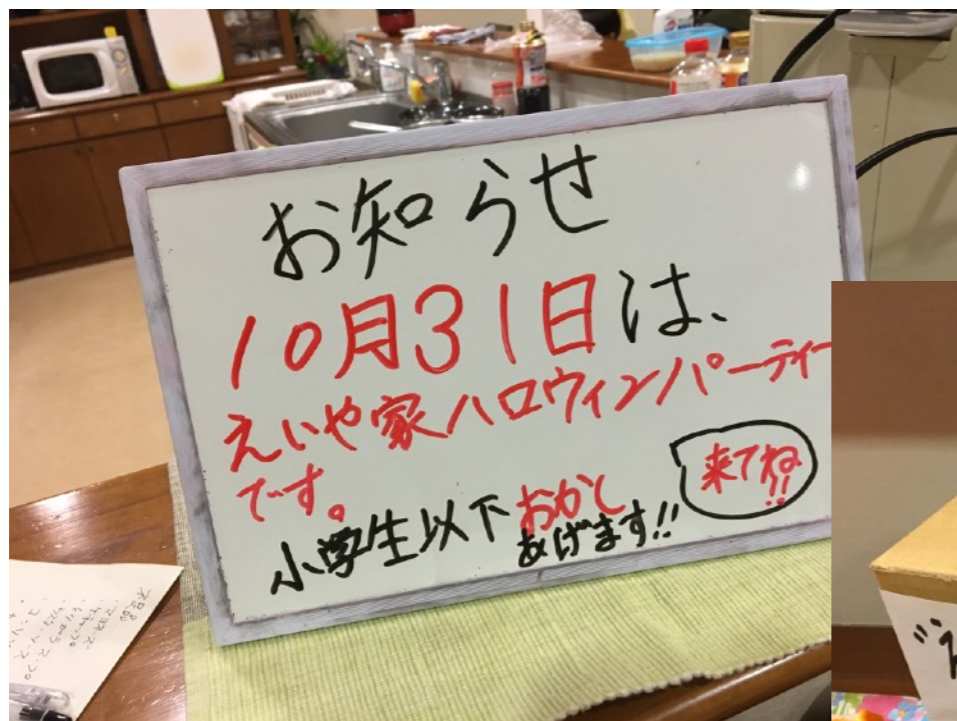 お知らせ
10月31日は、
えいや家ハロウィンパーティー
です。
小学生以下おかし
あげます!!
来てね
!!